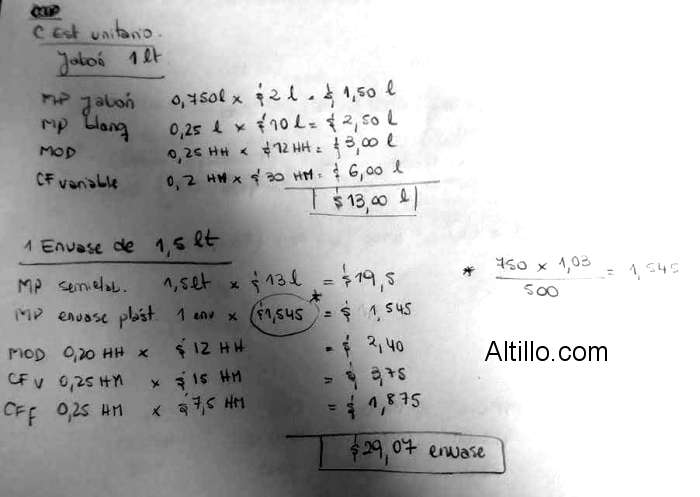 C Est unitario.
Jabón 1 lt
MP jabón 0,750l x $2 l = $ 1,50 l
MP blanq 0,25 l x $10 l = $ 2,50 l
MOD 0,25 HH x $12 HH = $ 3,00 l
CF variable 0,2 HM x $30 HM = $ 6,00 l
$ 13,00 l
1 Envase de 1,5 lt
MP semielab. 1,5lt x $13 l = $19,5
* 750 x 1,03 / 500 = 1,545
MP envase plást. 1 env x $1,545 * = $ 1,545
MOD 0,20 HH x $ 12 HH = $ 2,40
CFv 0,25 HM x $ 15 HM = $ 3,75
CFf 0,25 HM x $7,5 HM = $ 1,875
$29,07 envase
Altillo.com